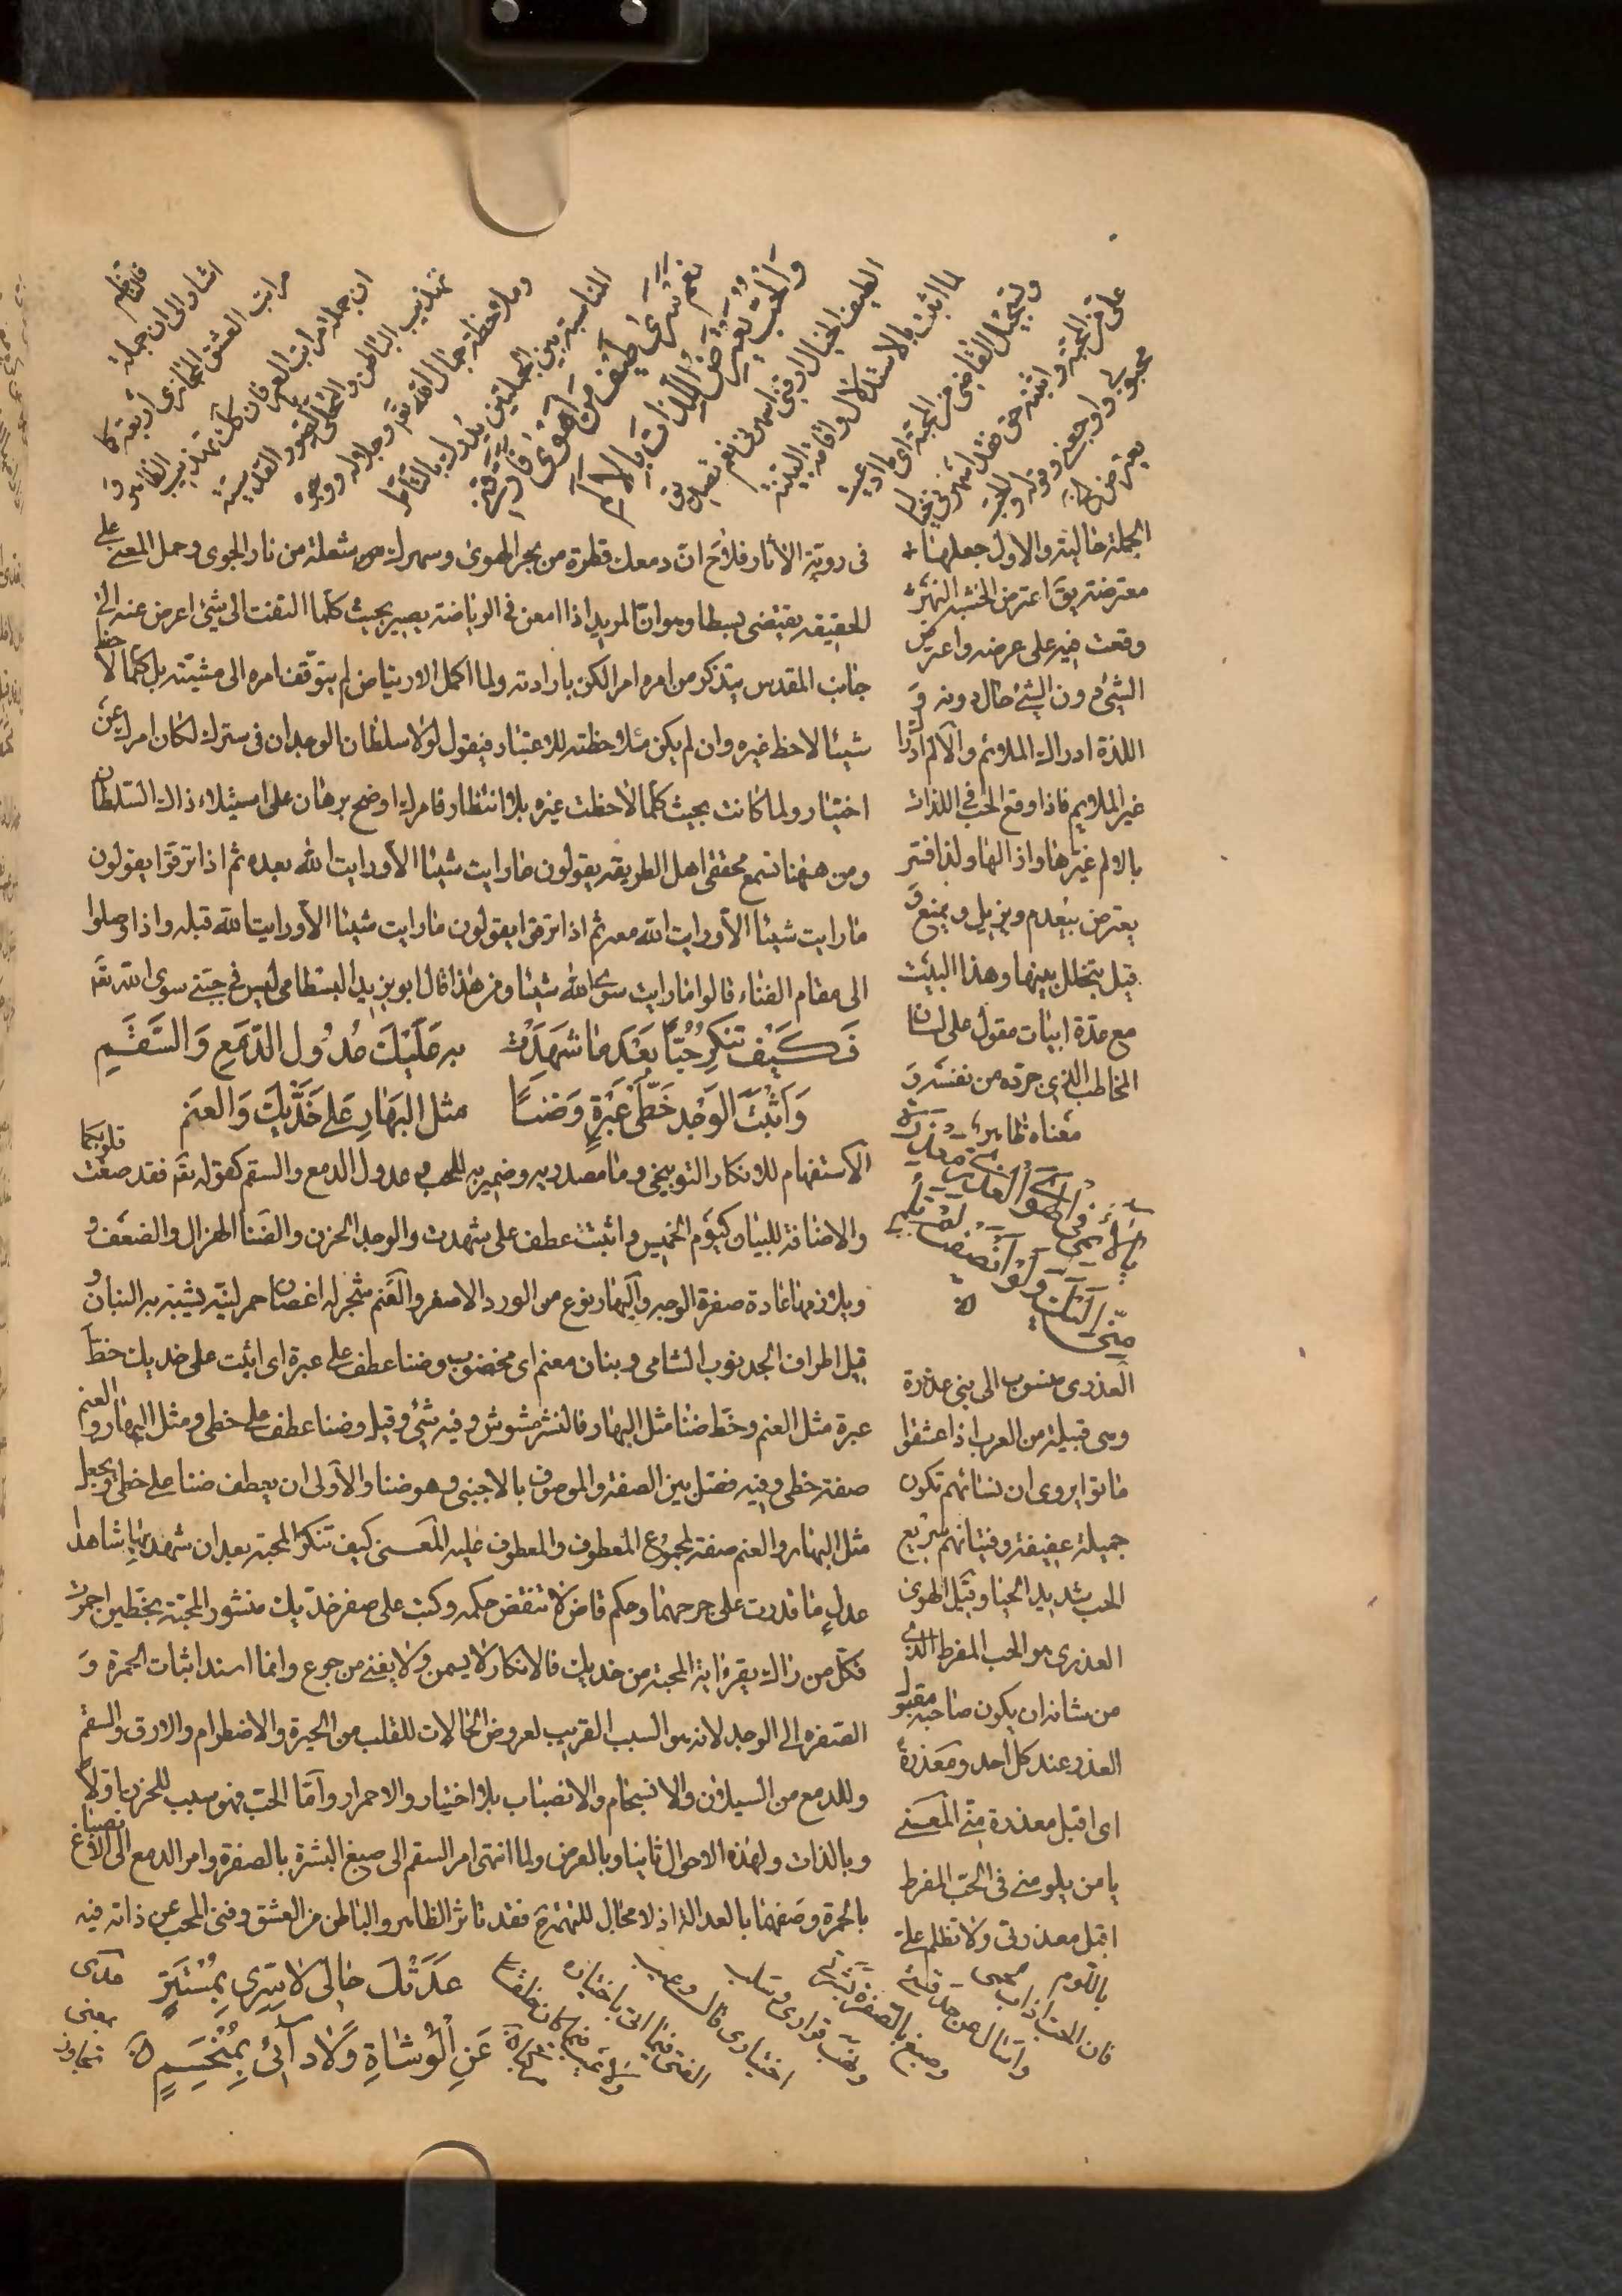 فى روية الأثار فلاح ان دمعك قطرة من بحر الهوى وسهرك شعلة من نار الجوى وحمل المعنى على
الحقيقه يقتضى بسطا وهو ان المريد اذا امعن فى الرياضة يصير بحيث كلما التفت الى شئ اعرض عنه الى
جانب المقدس يتذكر من امره امر الكن بارادته ولما اكمل الارتياض لم يتوقف امره الى مشيته بل كلما لاحظ
شيئا لاحظ غيره وان لم يكن ملاحظته للاعتبار فيقول لولا سلطان الوجدان فى سترك لكان امرك عن
اختيار ولما كانت بحيث كلما لاحظت غيره بلا انتظار فامرك اوضح برهان على استيلاء ذاك السلطان
ومن ههنا تسمع محققى اهل الطريقة يقولون ما رايت شيئا الا ورايت الله بعده ثم اذا ترقوا يقولون
ما رايت شيئا الا ورايت الله معه ثم اذا ترقوا يقولون ما رايت شيئا الا ورايت الله قبله واذا وصلوا
الى مقام الفناء قالوا ما رايت سوى الله شيئا ومن هذا قال ابو يزيد البسطامى ليس فى جبتى سوى الله تعـ
فَكَيْفَ تُنْكِرُ حُبًّا بَعْدَ مَا شَهِدَتْ به عَلَيْكَ عُدُولُ الدَّمْعِ وَالسَّقَمِ
وَاَثْبَتَ الوَجْدُ خَطَّىْ عَبْرَةٍ وَضَنًا مثل البَهَارِ عَلى خَدَّيْكَ وَالعَنَمِ
الاستفهام للانكار التوبيخى وما مصدرية وضمير به للحب وعدول الدمع والسقم كقوله تعـ فقد صغت قلوبكما
والاضافة للبيان كيوم الخميس واثبت عطف على شهدت والوجد الحزن والضنا الهزال والضعف و
ويلازمها عادة صفرة الوجه والبهار نوع من الورد الاصفر والعنم شجر له اغصان حمر لينة يشبه به البنان و
قيل اطراف الخرنوب الشامى وبنان معنم اى مخضوب وضنا عطف على عبرة اى اثبت على خديك خط
عبرة مثل العنم وخط ضنا مثل البهار فالنشر مشوش وفيه شئ وقيل وضنا عطف على خطى ومثل البهار والعنم
صفة خطى وفيه فصل بين الصفة والموصوف بالاجنبى وهو ضنا والاولى ان يعطف ضنا على خطى ويجعل
مثل البهار والعنم صفة لمجموع المعطوف والمعطوف عليه المعنى كيف تنكر المحبة بعد ان شهد بها شاهدا
عدل ما قدرت على جرحهما وحكم قاض لا تنقض حكمه وكتب على صفر خديك منشور المحبة بخطين احمرين
فكل من راك يقرء اية المحبة من خديك فالانكار لا يسمن ولا يغنى من جوع وانما اسند اثبات الحمرة و
الصفرة الى الوجد لانه هو السبب القريب لعروض الحالات للقلب من الحيرة والاضطرام والارق والسقم
وللدمع من السيلان والانسجام والانصباب بلا اختيار والاحمرار واما الحب فهو سبب للحزن اولا
وبالذات ولهذه الاحوال ثانيا وبالعرض ولما انتهى امر السقم الى صبغ البشرة بالصفرة وامر الدمع الى الانصباغ
بالحمرة وصفهما بالعدالة اذ لا مجال للتهمة فقد تاثر الظاهر والباطن من العشق وفنى المحب عن ذاته فيه
عَدَتْكَ حَالِىَ لَا سِرِّى بِمُسْتَتِرٍ
عَنِ الْوُشَاةِ وَلَا دَائِى بِمُنْحَسِمِ
عدى
بمعنى
تجاوز
فالناظم
اشار الى ان جملة
مراتب العشق المجازى اربعة كما
ان جملة مراتب العرفان كك تهذيب الظاهر و
تهذيب الباطن والتحلى بالصور القدسية
وملاحظة جمال الله تعـ وجلاله ووجه
المناسبة بين الجملتين يدرك بالتأمل
نَعَمْ سَرَى طَيْفُ مَنْ اَهْوَى فَاَرَّقَنِى
وَالْحُبُّ يَعْتَرِضُ اللَّذَّاتِ بِالْاَلَمِ
الطيف الخيال ارقنى اسهرنى نعم تصديق
لما اثبت بالاستدلال واقامة البينة
وتسجيل القاضى من المحبة اى ما ادعيت
على من المحبة واثبته حق فقد اسهرنى خيال
محبوبى واوجعنى وقوله والحب
يعترض الخ
الجملة حالية والاول جعلها
معترضة يق اعترض الخشب النهر
وقعت فيه على عرضه واعترض
الشئ دون الشئ حال دونه و
اللذة ادراك الملايم والالم ادراك
غير الملايم فاذا وقع الحب فى اللذات
بالالم غيرها وازالها ولذا فسر
يعترض بيعدم ويزيل ويمنع و
قيل يتخلل بينها وهذا البيت
مع عدة ابيات مقول على لسان
المخاطب الذى جرده من نفسه و
معناه ظاهر
يَا لَائِمِى فِى الْهَوَى الْعُذْرِىِّ مَعْذِرَةً
مِنِّى اِلَيْكَ وَلَوْ اَنْصَفْتَ لَمْ تَلُمِ
العذرى منسوب الى بنى عذرة
وهى قبيلة من العرب اذا عشقوا
ماتوا يروى ان نسائهم تكون
جميلة عفيفة وفتيانهم سريع
الحب شديد الحيا وقيل الهوى
العذرى هو الحب المفرط الذى
من شانه ان يكون صاحبه مقبول
العذر عند كل احد ومعذرة
اى اقبل معذرة منى المعنى
يا من يلومنى فى الحب المفرط
اقبل معذرتى ولا تظلم على
باللوم
فان الحب اذاب
وصبغ بالصفرة بشرتى